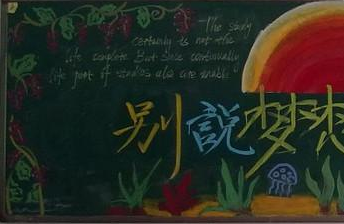 "The study
certainly is not the
life complete. But since continually
life part of studies also are unable"
別說夢想